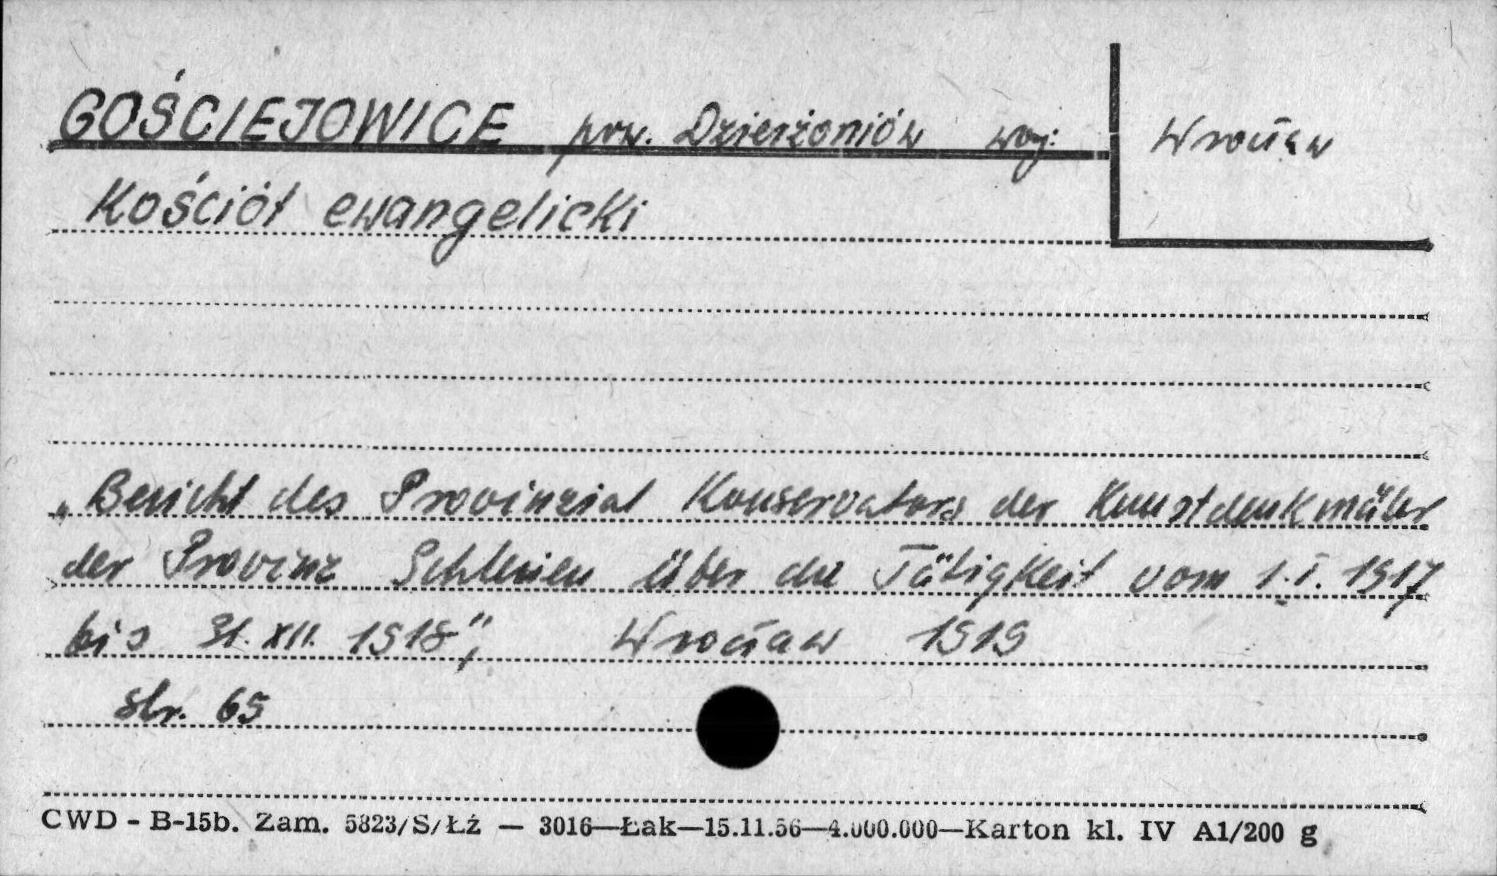 GOŚCIEJOWICE pow. Dzierżoniów woj: Wrocław
Kościół ewangelicki
„Bericht des Provinzial Konservators der Kunstdenkmäler
der Provinz Schlesien über die Tätigkeit vom 1.I. 1917
bis 31.XII. 1918”, Wrocław 1919
str. 65
CWD - B-15b. Zam. 5823/S/Łź — 3016—Łak—15.11.56—4.000.000—Karton kl. IV A1/200 g